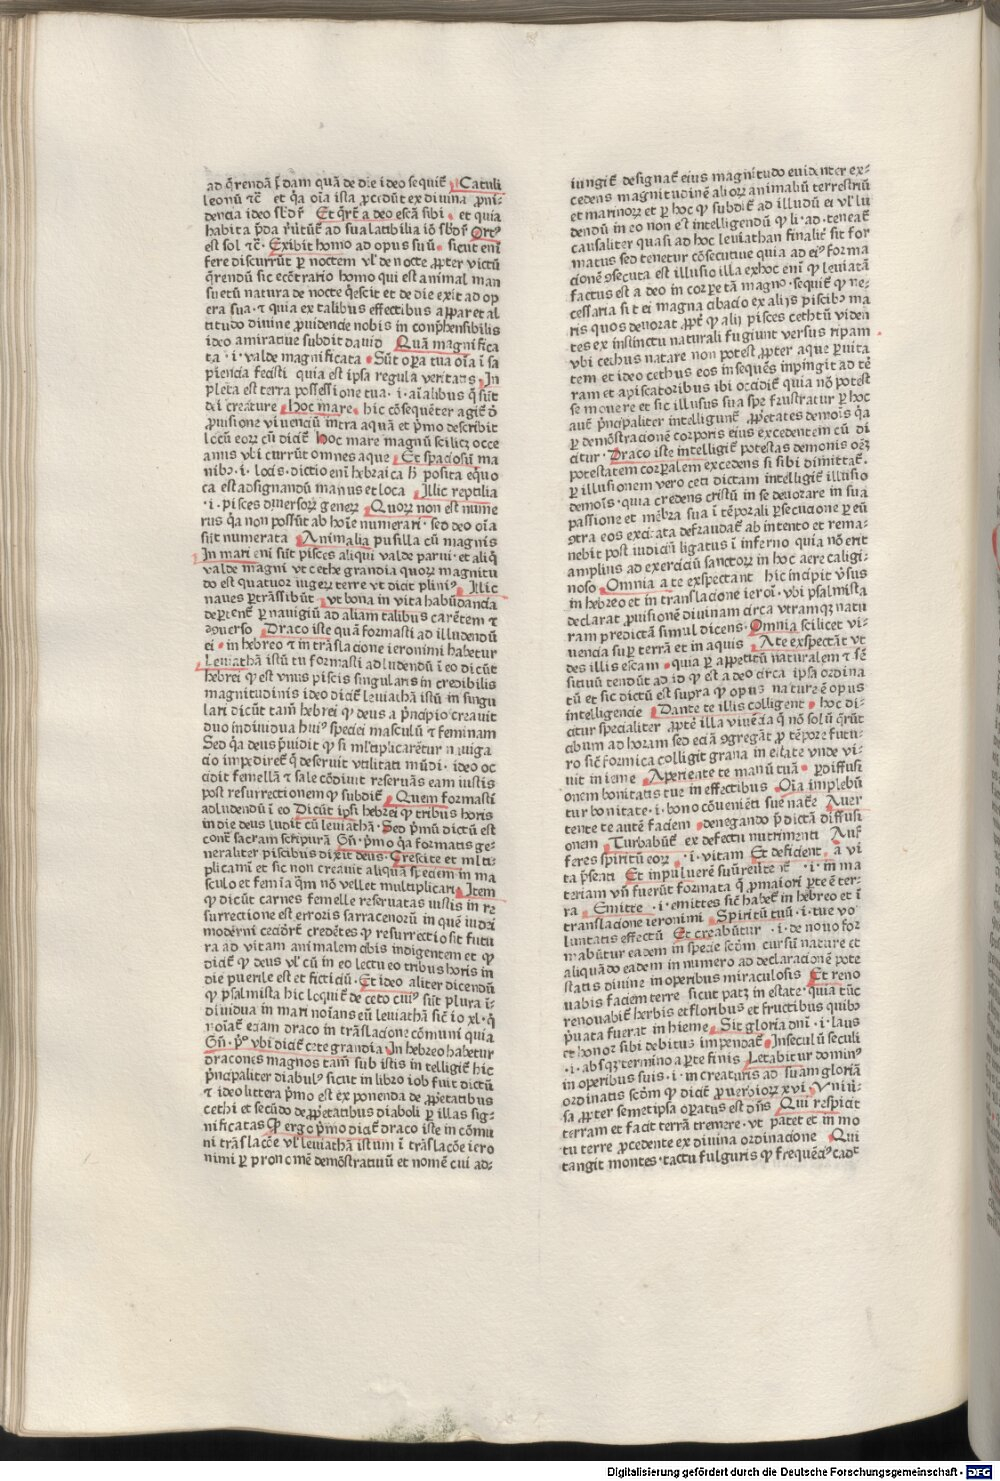 ad q̄rendā p̄dam quā de die ideo sequit᷑ Catuli
leonū ⁊c̄ et q̄a oīa ista ꝓcedūt ex diuina ꝓui-
dencia ideo sbdit᷑ Et q̄rāt a deo escā sibi · et quia
habita p̄da rūtūt᷑ ad sua latibilia iō sbdit᷑ Ortꝰ
est sol ⁊c̄ · Exibit homo ad opus suū · sicut enī
fere discurrūt ꝑ noctem vl᷑ de nocte ꝓpter victū
q̄rendū sic ecōtrario homo qui est animal man
suetū natura de nocte q̄escit et de die exit ad op
era sua · ⁊ quia ex talibus effectibus apparet al
titudo diuine ꝓuidencie nobis in conp̄hensibilis
ideo amiratiue subdit dauid Quā magnifica
ta · i · valde magnificata · Sūt opera tua oīa ī sa
piencia fecisti quia est ipsa regula veritatis · In
pleta est terra possessione tua · i · aīalibus q̄ sūt
dei creature hoc mare · hic cōsequēter agit᷑ de
ꝓuisione viuenciū intra aquā et pͥmo describit
locū eoꝝ cū dicit᷑ hoc mare magnū scilicꝫ occe
anus vbi currūt omnes aque · Et spaciosū ma
nibꝫ · i · locis · dictio enī hebraica hͥ posita equo
ca est ad signandū manus et loca · Illic reptilia
· i · pisces diuersoꝝ generꝝ · Quoꝝ non est nume
rus q̄a non possūt ab hoīe numerari · sed deo oīa
sūt numerata · Animalia pusilla cū magnis
In mari enī sūt pisces aliqui valde parui · et aliq̄
valde magni vt cethe grandia quoꝝ magnitu
do est quatuor iugerꝝ terre vt dicit pliniꝰ · Illic
naues ꝑtrāssibūt · vt bona in vita habūdancia
deꝑtent᷑ ꝑ nauigiū ad aliam talibus carētem ⁊
ꝯuerso · Draco iste quā formasti ad illudendū
ei · in hebreo ⁊ in trāslacione ieronimi habetur
Leuiathā istū tu formasti ad ludendū ī eo dicūt
hebrei ꝙ est vnus piscis singularis in credibilis
magnitudinis ideo dicit᷑ leuiathā istū in singu
lari dicūt tamē hebrei ꝙ deus a pͥncipio creauit
duo indiuidua huiꝰ speciei masculū ⁊ feminam
Sed q̄a deus p̄uidit ꝙ si ml̄tiplicarētur nauiga
cio impediret᷑ q̄ deseruit vtilitati mūdi · ideo oc
cidit femellā ⁊ sale cōdiuit reseruās eam iustis
post resurrectionem ꝙ subdit᷑ · Quem formasti
ad ludendū ī eo Dicūt ipsi hebrei ꝙ tribus horis
in die deus ludit cū leuiathā · Sed pͥmū dictū est
cont᷑ sacram scripturā Gn̄ · pͥmo q̄a formatis ge-
neraliter piscibus dixit deus · Crescite et ml̄ti-
plicamī et sic non creauit aliquā speciem in ma
sculo et femīa q̄m nō vellet multiplicari · Item
ꝙ dicūt carnes femelle reseruatas iustis in re
surrectione est erroris sarracenorū in quē iudei
moderni ceciderūt credētes ꝙ resurrectio sit futu
ra ad vitam animalem cibis indigentem et ꝙ
dicit᷑ ꝙ deus vl᷑ cū in eo lectu eo tribus horis in
die puerile est et ficticiū · Et ideo aliter dicendū
ꝙ psalmista hic loquit᷑ de ceto cuiꝰ sūt plura ī-
diuidua in mari noīans eū leuiathā sic̄ io xl · q̄
noīat᷑ eciam draco in trāslacione cōmuni quia
Gn̄ · pͥ° vbi dicit᷑ cete grandia · In hebreo habetur
dracones magnos tamē sub istis in telligit᷑ hic
pͥncipaliter diabulꝰ sicut in libro iob fuit dictū
⁊ ideo littera pͥmo est exponenda de ꝓpͥetatibus
cethi et secūdo de ꝓpͥetatibus diaboli ꝑ illas sig-
nificatas ꝙ ergo pͥmo dicit᷑ draco iste in cōmu
ni trāslacōe vl᷑ leuiathā istum ī trāslacōe iero
nimi ꝑ pronomē demōstratiuū et nomē cui ad-
iungit᷑ designat᷑ eius magnitudo euidenter ex-
cedens magnitudinē alioꝝ animaliū terrestriū
et marinoꝝ et ꝑ hoc ꝙ subdit᷑ ad illudū ei vl᷑ lu
dendū in eo non est intelligendū ꝙ li · ad · teneat᷑
causaliter quasi ad hoc leuiathan finalit᷑ sit for
matus sed tenetur cōsecutiue quia ad eiꝰ forma
cionē ꝯsecuta est illusio illa ex hoc enī ꝙ leuiatā
factus est a deo in corpe tā magno · sequit᷑ ꝙ ne-
cessaria sit ei magna cibacio ex alijs piscibꝫ ma
ris quos deuorat ꝓpt᷑ ꝙ alij pisces cethū viden
tes ex instinctu naturali fugiunt versus ripam
vbi cethus natare non potest ꝓpter aque ꝑuita
tem et ideo cethus eos insequēs inpingit ad tē
ram et apiscatoribus ibi occidit᷑ quia nō potest
se mouere et sic illusus sua spe frustratur ꝑ hoc
autē pͥncipaliter intelligunt᷑ ꝓpͥetates demoīs q̄a
ꝑ demōstracionē corporis eius excedentem cū di
citur · Draco iste intelligit᷑ potestas demonis oēꝫ
potestatem corꝑalem excedens si sibi dimittat᷑ ·
ꝑ illusionem vero ceti dictam intelligit᷑ illusio
demoīs · quia credens cristū in se deuorare in sua
passione et mēbra sua ī tēporali ꝑsecucione ꝑ eū
ꝯtra eos excitata defraudat᷑ ab intento et rema-
nebit post iudiciū ligatus ī inferno quia nō erit
amplius ad exerciciū sanctoꝝ in hoc aere caligi-
noso · Omnia a te exspectant hic incipit v̄sus
in hebreo et in translacione ieroī · vbi psalmista
declarat ꝓuisionē diuinam circa vtramqꝫ natu
ram predictā simul dicens · Omnia scilicet vi-
uencia suꝑ terrā et in aquis · A te exspectāt vt
des illis escam · quia ꝑ appetitū naturalem ⁊ sē
sitiuū tendūt ad id ꝙ est a deo circa ipsa ordina
tū et sic dictū est supra ꝙ opus nature ē opus
intelligencie · Dante te illis colligent · hoc di-
citur specialiter ꝓpt᷑ illa viuēcia q̄ nō solū q̄rūt
cibum ad horam sed eciā ꝯgregāt ꝓ tēpore futu-
ro sic̄ formica colligit grana in estate vnde vi-
uit in ieme · Aperiente te manū tuā · ꝑ diffusi
onem bonitatis tue in effectibus · Oīa implebū
tur bonitate · i · bono cōuenīeti sue nat᷑e Auer
tente te autē faciem · denegando p̄dictā diffusi
onem · Turbabūt᷑ ex defectu nutrimenti Auf
feres spiritū eoꝝ · · i · vitam Et deficient · a vi
ta p̄senti Et in puluerē suū reuerte n̄t · i · in ma
teriam vn̄ fuerūt formata q̄ ꝓ maiori ꝑte ē ter-
ra · Emitte · i · emittes sic̄ habet᷑ in hebreo et ī
translacione ieronimi · Spiritū tuū · i · tue vo
luntatis effectū Et creabūtur · i · de nouo for
mabūtur eadem in specie scd̄m cursū nature et
aliquādo eadem in numero ad declaracionē pote
statis diuine in operibus miraculosis · Et reno
uabis faciem terre sicut patꝫ in estate · quia tūc
renouabit᷑ herbis et floribus et fructibus quibꝫ
p̄uata fuerat in hieme · Sit gloria dn̄i · i · laus
et honor sibi debitus impendat᷑ · In seculū seculi
· i · absqꝫ termino a ꝑte finis Letabitur dominꝰ
in operibus suis · i · in creaturis ad suam gloriā
ordinatis scd̄m ꝙ dicit᷑ ꝓuerbioꝝ xvi · Vniūͥ-
sa ꝓpter semetipsa oꝑatus est dn̄s · Qui respicit
terram et facit terrā tremere · vt patet et in mo
tu terre ꝓcedente ex diuina ordinacione · Qui
tangit montes · tactu fulguris ꝙ frequēciꝰ cadt
Digitalisierung gefördert durch die Deutsche Forschungsgemeinschaft - DFG